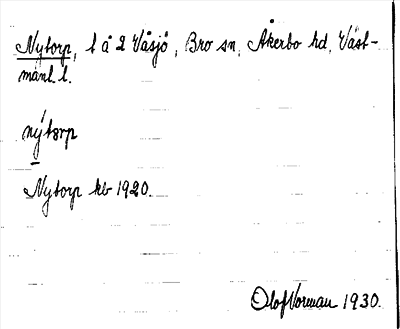 Nytorp, t å 2 Våsjö, Bro sn, Åkerbo hd, Väst-
manl. l.
nýtɔrp
Nytorp kb 1920.
Olof Vorman 1930.